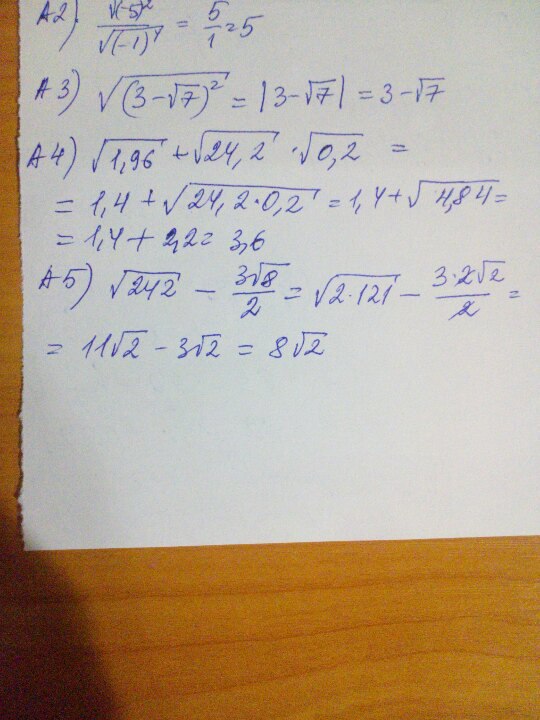 A2) √(-5)² / √(-1)⁴ = 5/1 = 5
A3) √(3-√7)² = |3-√7| = 3-√7
A4) √1,96 + √24,2 · √0,2 =
= 1,4 + √24,2·0,2 = 1,4 + √4,84 =
= 1,4 + 2,2 = 3,6
A5) √242 - 3√8/2 = √2·121 - 3·2√2/2 =
= 11√2 - 3√2 = 8√2